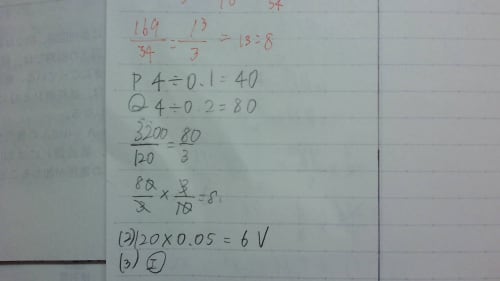 169/34 = 13/3 = 13=8
P 4÷0.1=40
Q 4÷0.2=80
3200/120 = 80/3
80/3 × 3/10 = 8
(2) 120×0.05 = 6 V
(3) エ